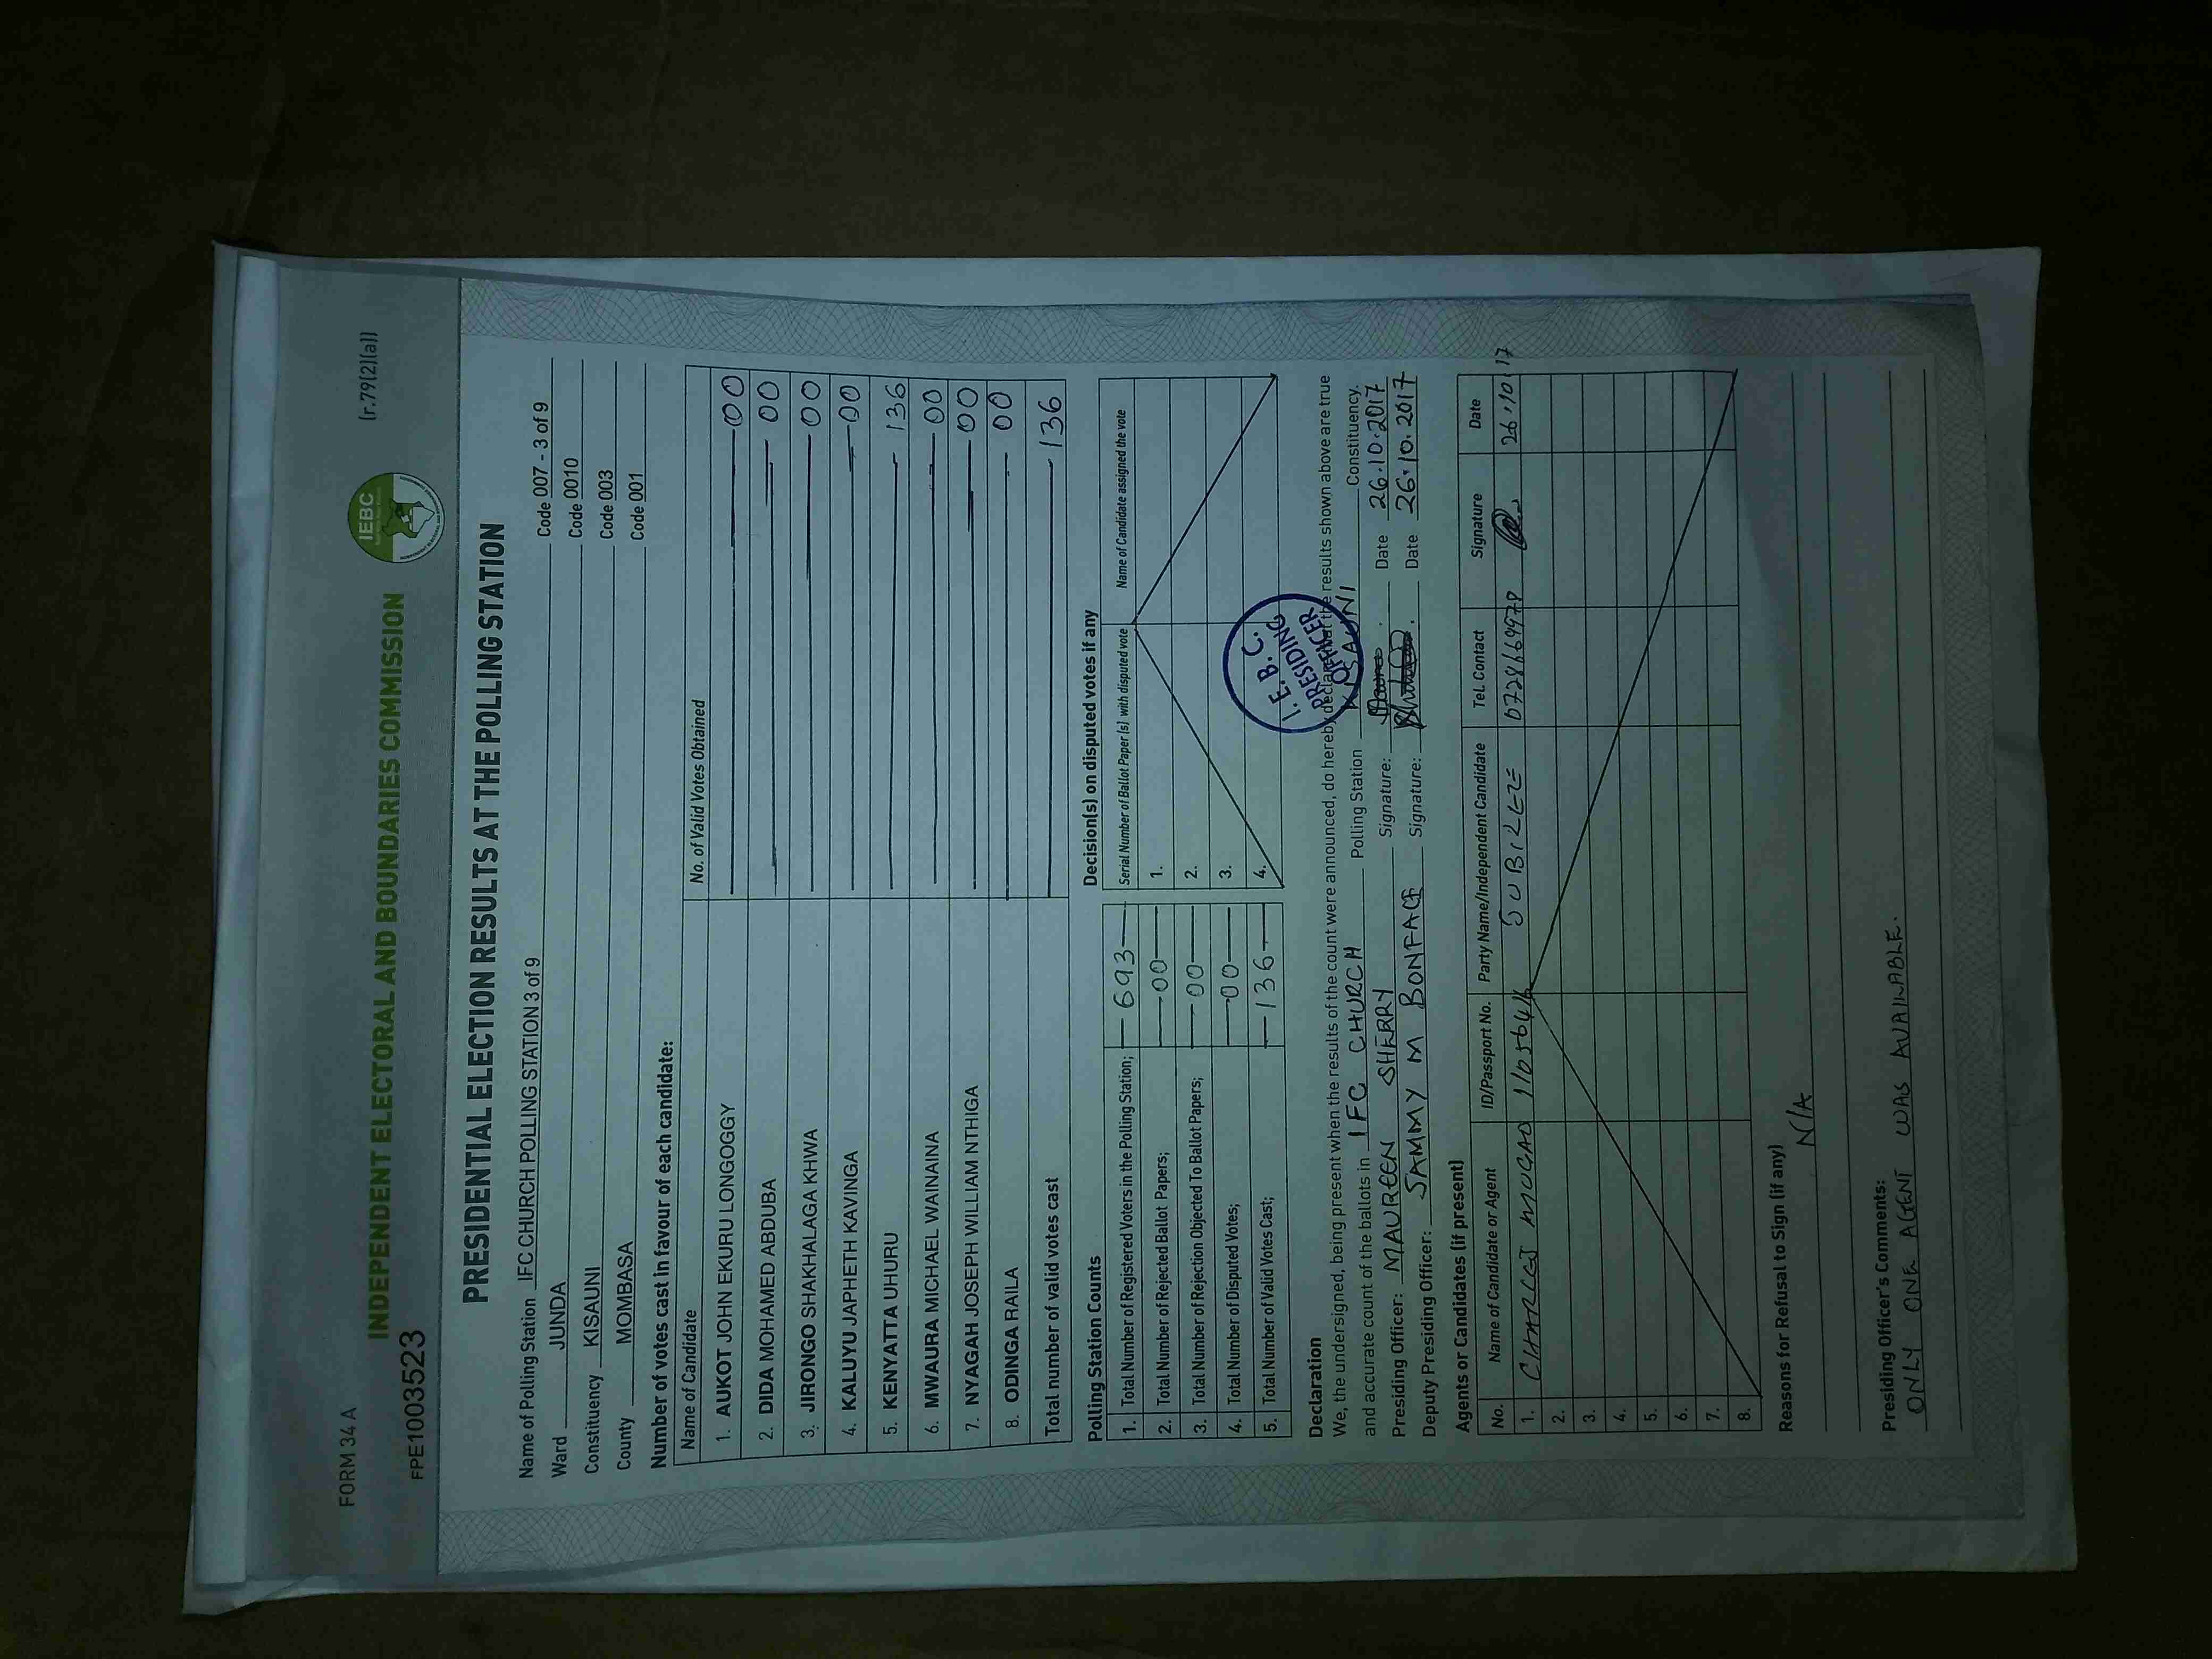 FORM 34 A
(r.79(2)(a))
INDEPENDENT ELECTORAL AND BOUNDARIES COMMISSION
IEBC
FPE1003523
PRESIDENTIAL ELECTION RESULTS AT THE POLLING STATION
Name of Polling Station IFC CHURCH POLLING STATION 3 of 9 Code 007 - 3 of 9
Ward JUNDA Code 0010
Constituency KISAUNI Code 003
County MOMBASA Code 001
Number of votes cast in favour of each candidate:
Name of Candidate No. of Valid Votes Obtained
1. AUKOT JOHN EKURU LONGOGGY 00
2. DIDA MOHAMED ABDUBA 00
3. JIRONGO SHAKHALAGA KHWA 00
4. KALUYU JAPHETH KAVINGA 00
5. KENYATTA UHURU 136
6. MWAURA MICHAEL WAINAINA 00
7. NYAGAH JOSEPH WILLIAM NTHIGA 00
8. ODINGA RAILA 00
Total number of valid votes cast 136
Polling Station Counts
1. Total Number of Registered Voters in the Polling Station; 693
2. Total Number of Rejected Ballot Papers; 00
3. Total Number of Rejection Objected To Ballot Papers; 00
4. Total Number of Disputed Votes; 00
5. Total Number of Valid Votes Cast; 136
Decision(s) on disputed votes if any
Serial Number of Ballot Paper (s) with disputed vote Name of Candidate assigned the vote
1.
2.
3.
4.
I.E.B.C.
PRESIDING
OFFICER
Declaration
We, the undersigned, being present when the results of the count were announced, do hereby declare that the results shown above are true
and accurate count of the ballots in IFC CHURCH Polling Station KISAUNI Constituency.
Presiding Officer: MAUREEN SHERRY Signature: Date 26.10.2017
Deputy Presiding Officer: SAMMY M BONFACE Signature: Date 26.10.2017
Agents or Candidates (if present)
No. Name of Candidate or Agent ID/Passport No. Party Name/Independent Candidate Tel. Contact Signature Date
1. CHARLES JUBILEE 26.10.17
2.
3.
4.
5.
6.
7.
8.
Reasons for Refusal to Sign (if any)
N/A
Presiding Officer's Comments:
ONLY ONE AGENT WAS AVAILABLE.